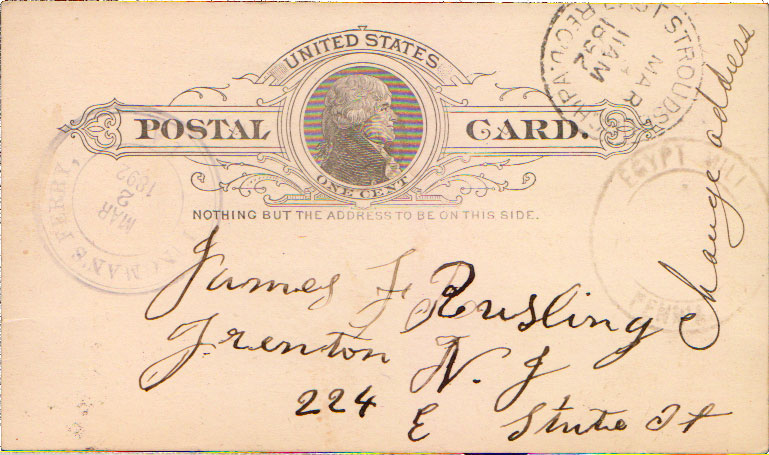 UNITED STATES
POSTAL CARD.
ONE CENT
NOTHING BUT THE ADDRESS TO BE ON THIS SIDE.
STROUDS
MAR
11AM
1892
REC'D
INGMAN'S FERRY,
MAR
2
1892
EGYPT MILL
PENN'A
Change address
James F Rusling
Trenton N. J
224 E State St